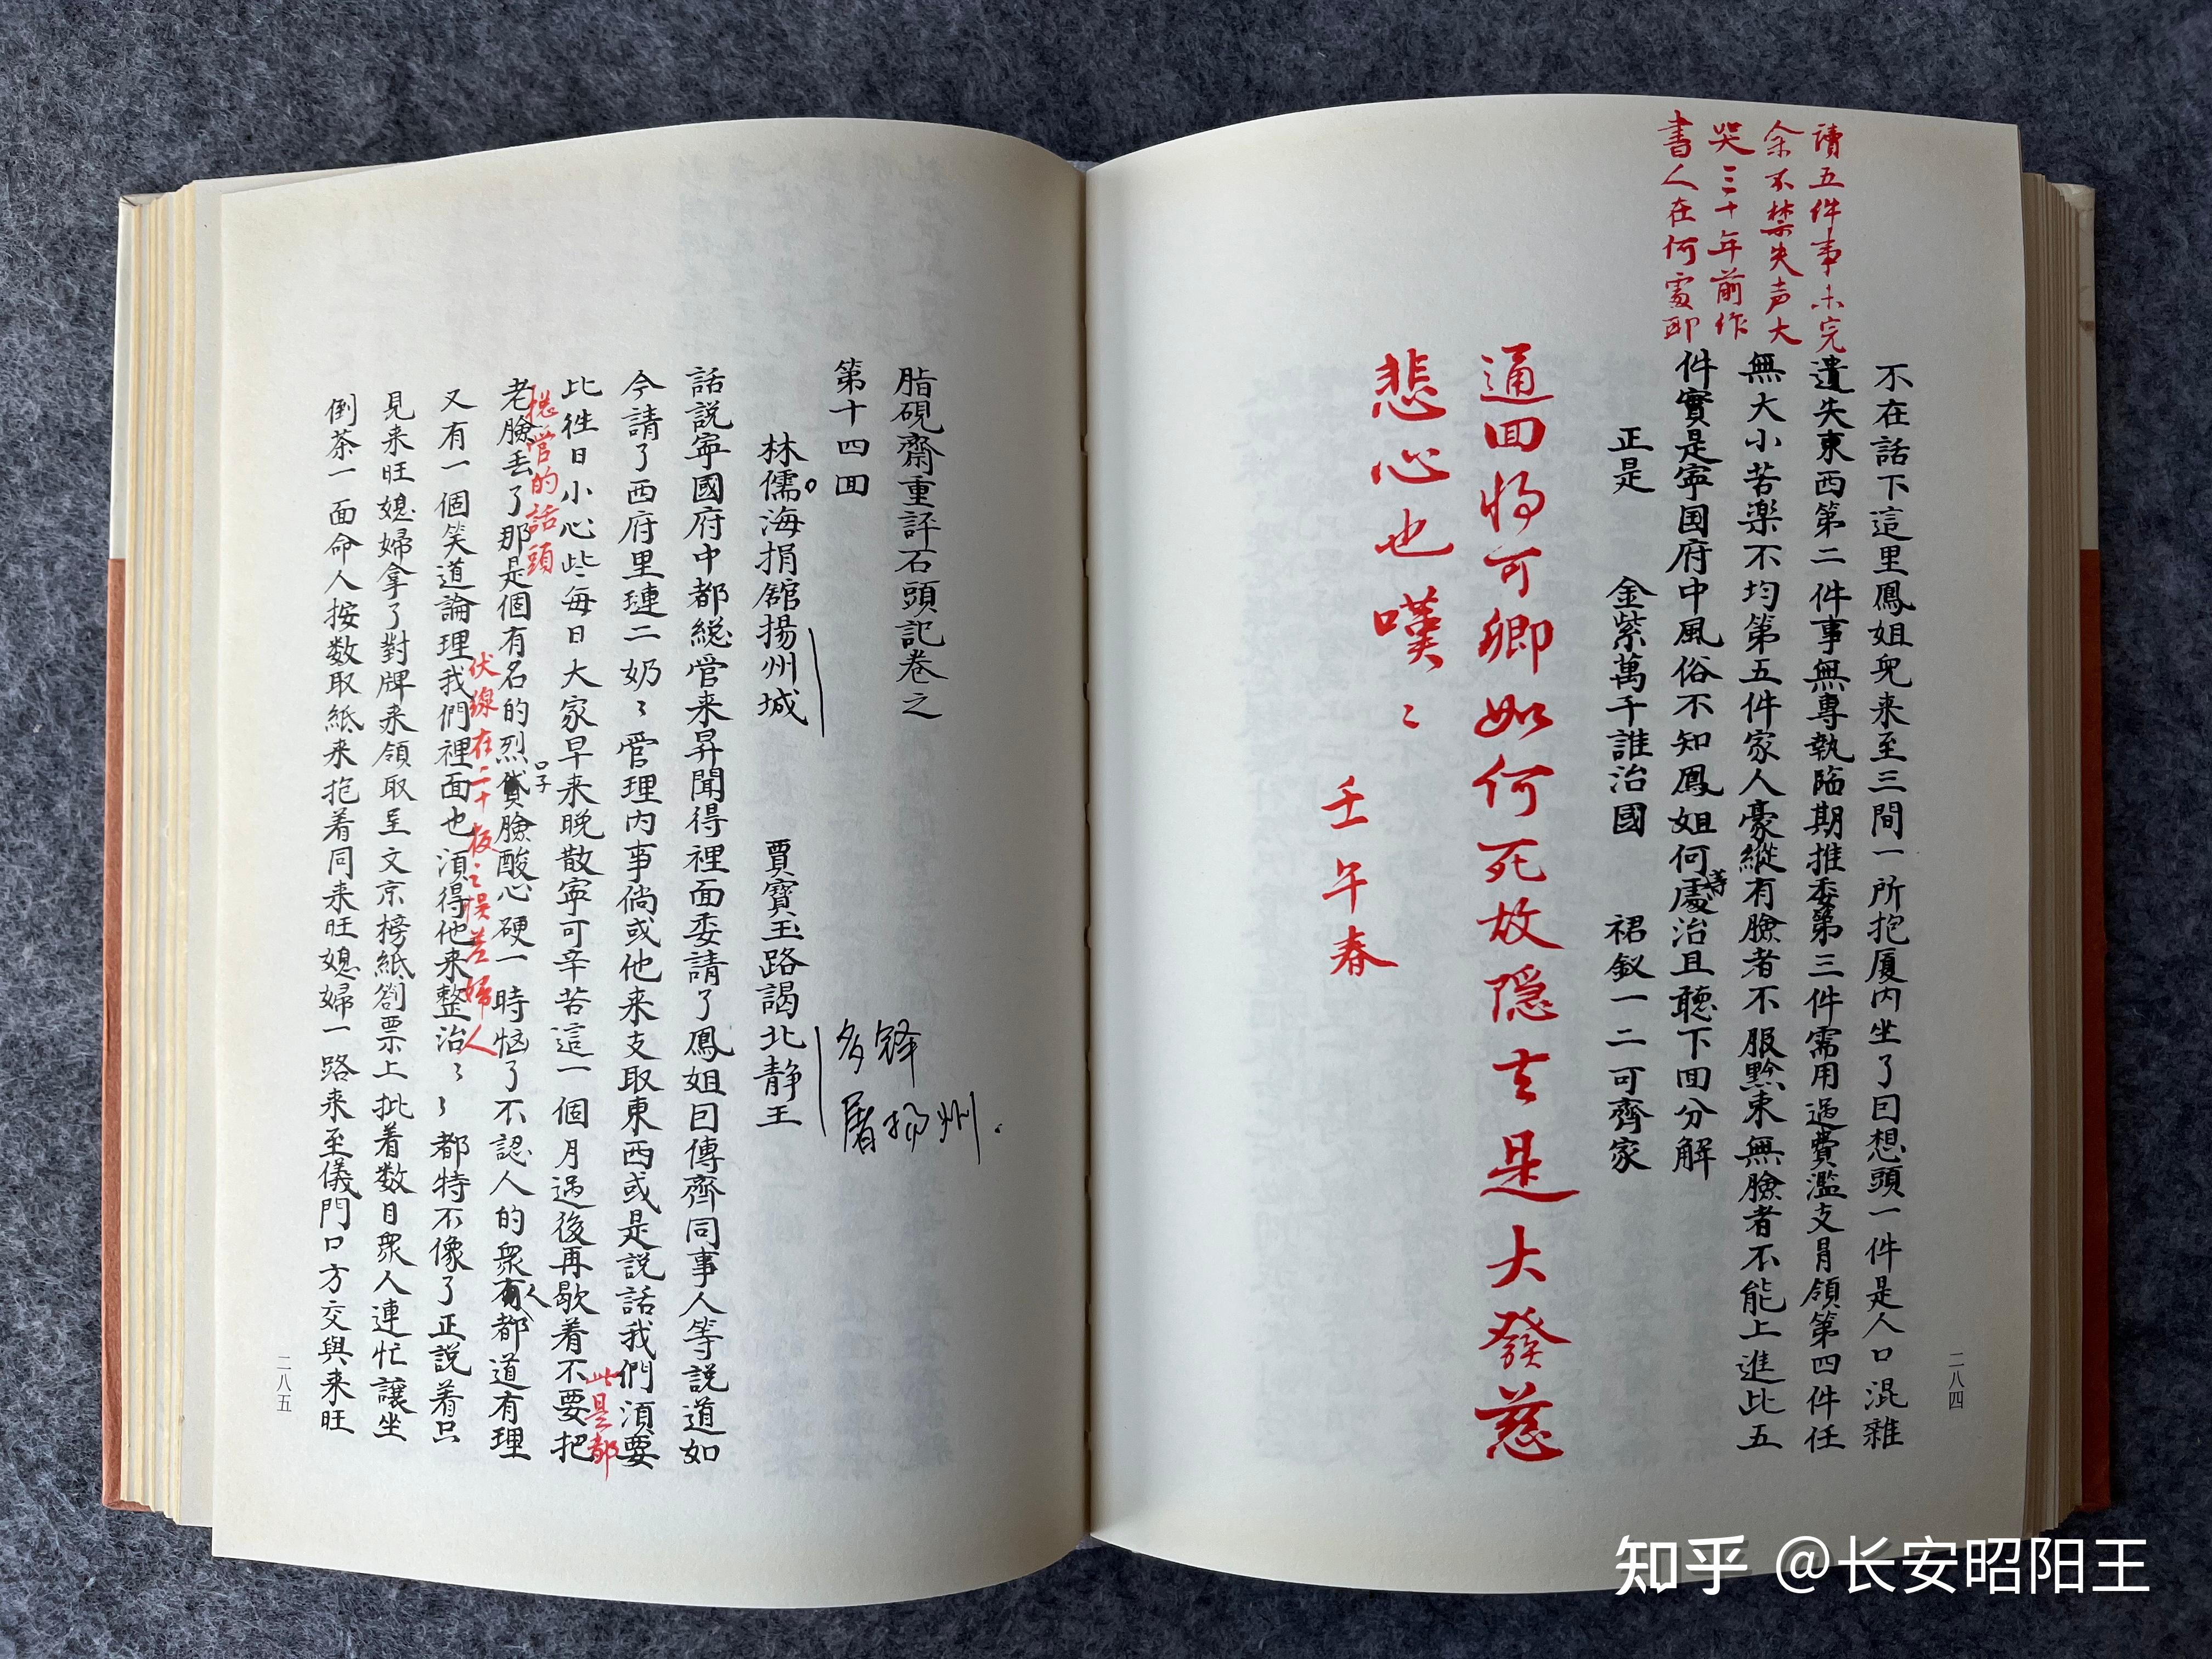 讀五件事未完
余不禁失声大
哭三十年前作
書人在何處耶
不在話下這里鳳姐兒来至三間一所抱厦内坐了囙想頭一件是人口混雜
遺失東西第二件事無專執臨期推委第三件需用過費濫支冐領第四件任
無大小苦楽不均第五件家人豪縱有臉者不服黔束無臉者不能上進此五
件實是寧国府中風俗不知鳳姐何處治且聽下囬分解
等
正是
金紫萬千誰治國
裙釵一二可齊家
通囬將可卿如何死故隱去是大發慈
悲心也嘆〻
壬午春
二八四
脂硯齋重評石頭記卷之
第十四囬
林儒海捐舘揚州城
賈寶玉路謁北静王
多铎
屠扬州.
話説寧國府中都緫管来昇聞得裡面委請了鳳姐囙傳齊同事人等説道如
今請了西府里璉二奶〻管理内事倘或他来支取東西或是説話我們湏要
此是都
比徃日小心些每日大家早来晚散寧可辛苦這一個月過後再歇着不要把
捴管的話頭
老臉丢了那是個有名的烈貨臉酸心硬一時恼了不認人的衆有都道有理
口子
人
又有一個笑道論理我們裡面也湏得他来整治〻〻都特不像了正説着只
伏線在二十板〻悮差婦人
見来旺媳婦拿了對牌来領取呈文京榜紙劄票上批着数目衆人連忙讓坐
倒茶一面命人按数取紙来抱着同来旺媳婦一路来至儀門口方交與来旺
二八五
知乎 @长安昭阳王